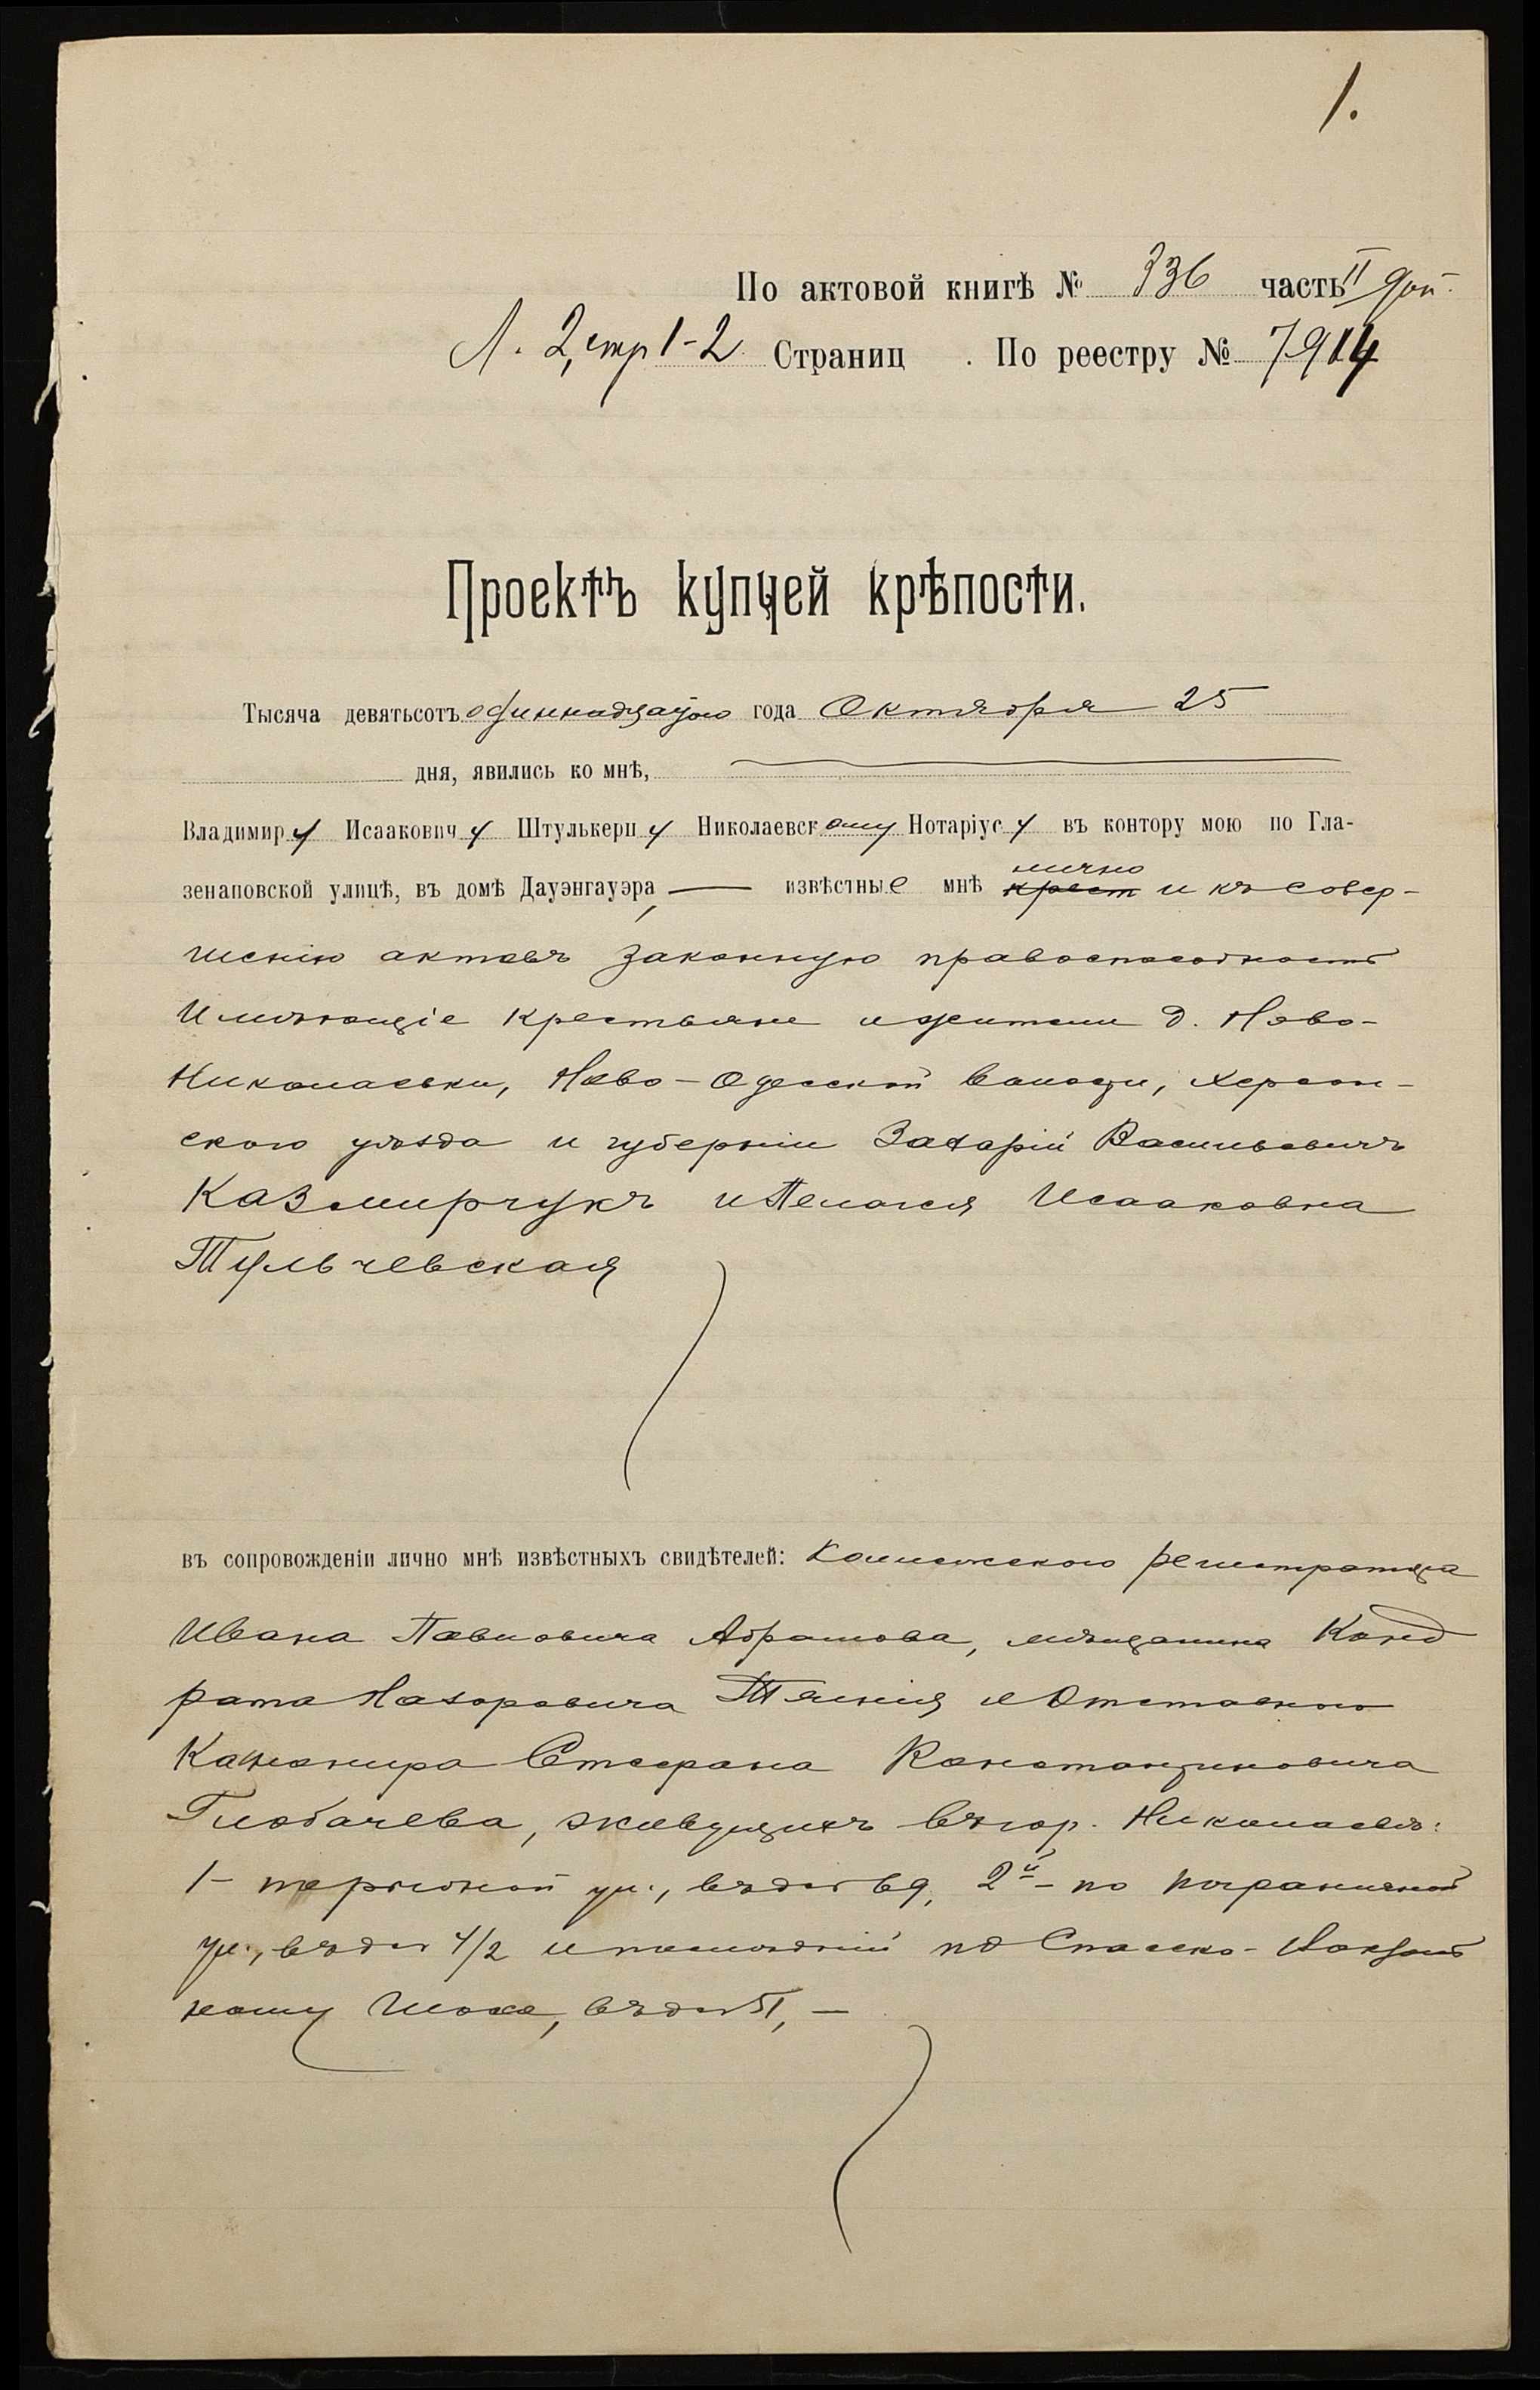 1.
По актовой книгѣ № 336 часть II доп.
Л. 2, стр 1-2 Страниц . По реестру № 7914
Проектъ купчей крѣпости.
Тысяча девятьсотъ одиннадцатого года Октября 25
дня, явились ко мнѣ,
Владимиру Исааковичу Штулькерцу Николаевскому Нотаріусу въ контору мою по Гла-
зенаповской улицѣ, въ домѣ Дауэнгауэра, — извѣстные мнѣ лично и къ совер-
шенію актовъ законную правоспособность
Имѣющіе крестьяне и жители д. Ново-
Николаевки, Ново-Одесской волости, Херсон-
ского уѣзда и губерніи Захарій Васильевичъ
Казмирчукъ и Пелагея Исааковна
Тульчевская
въ сопровожденіи лично мнѣ извѣстныхъ свидѣтелей: Коллежского регистратора
Ивана Павловича Абрамова, мѣщанина Конд
рата Назаровича и Отставного
Канонира Стефана Константиновича
Глобачева, живущихъ въ гор. Николаевѣ:
1- ул., въ д № 69, 2й - по Пограничной
ул., въ д № 4/2 и послѣдній по Спасско-
ному въ д № 51, —